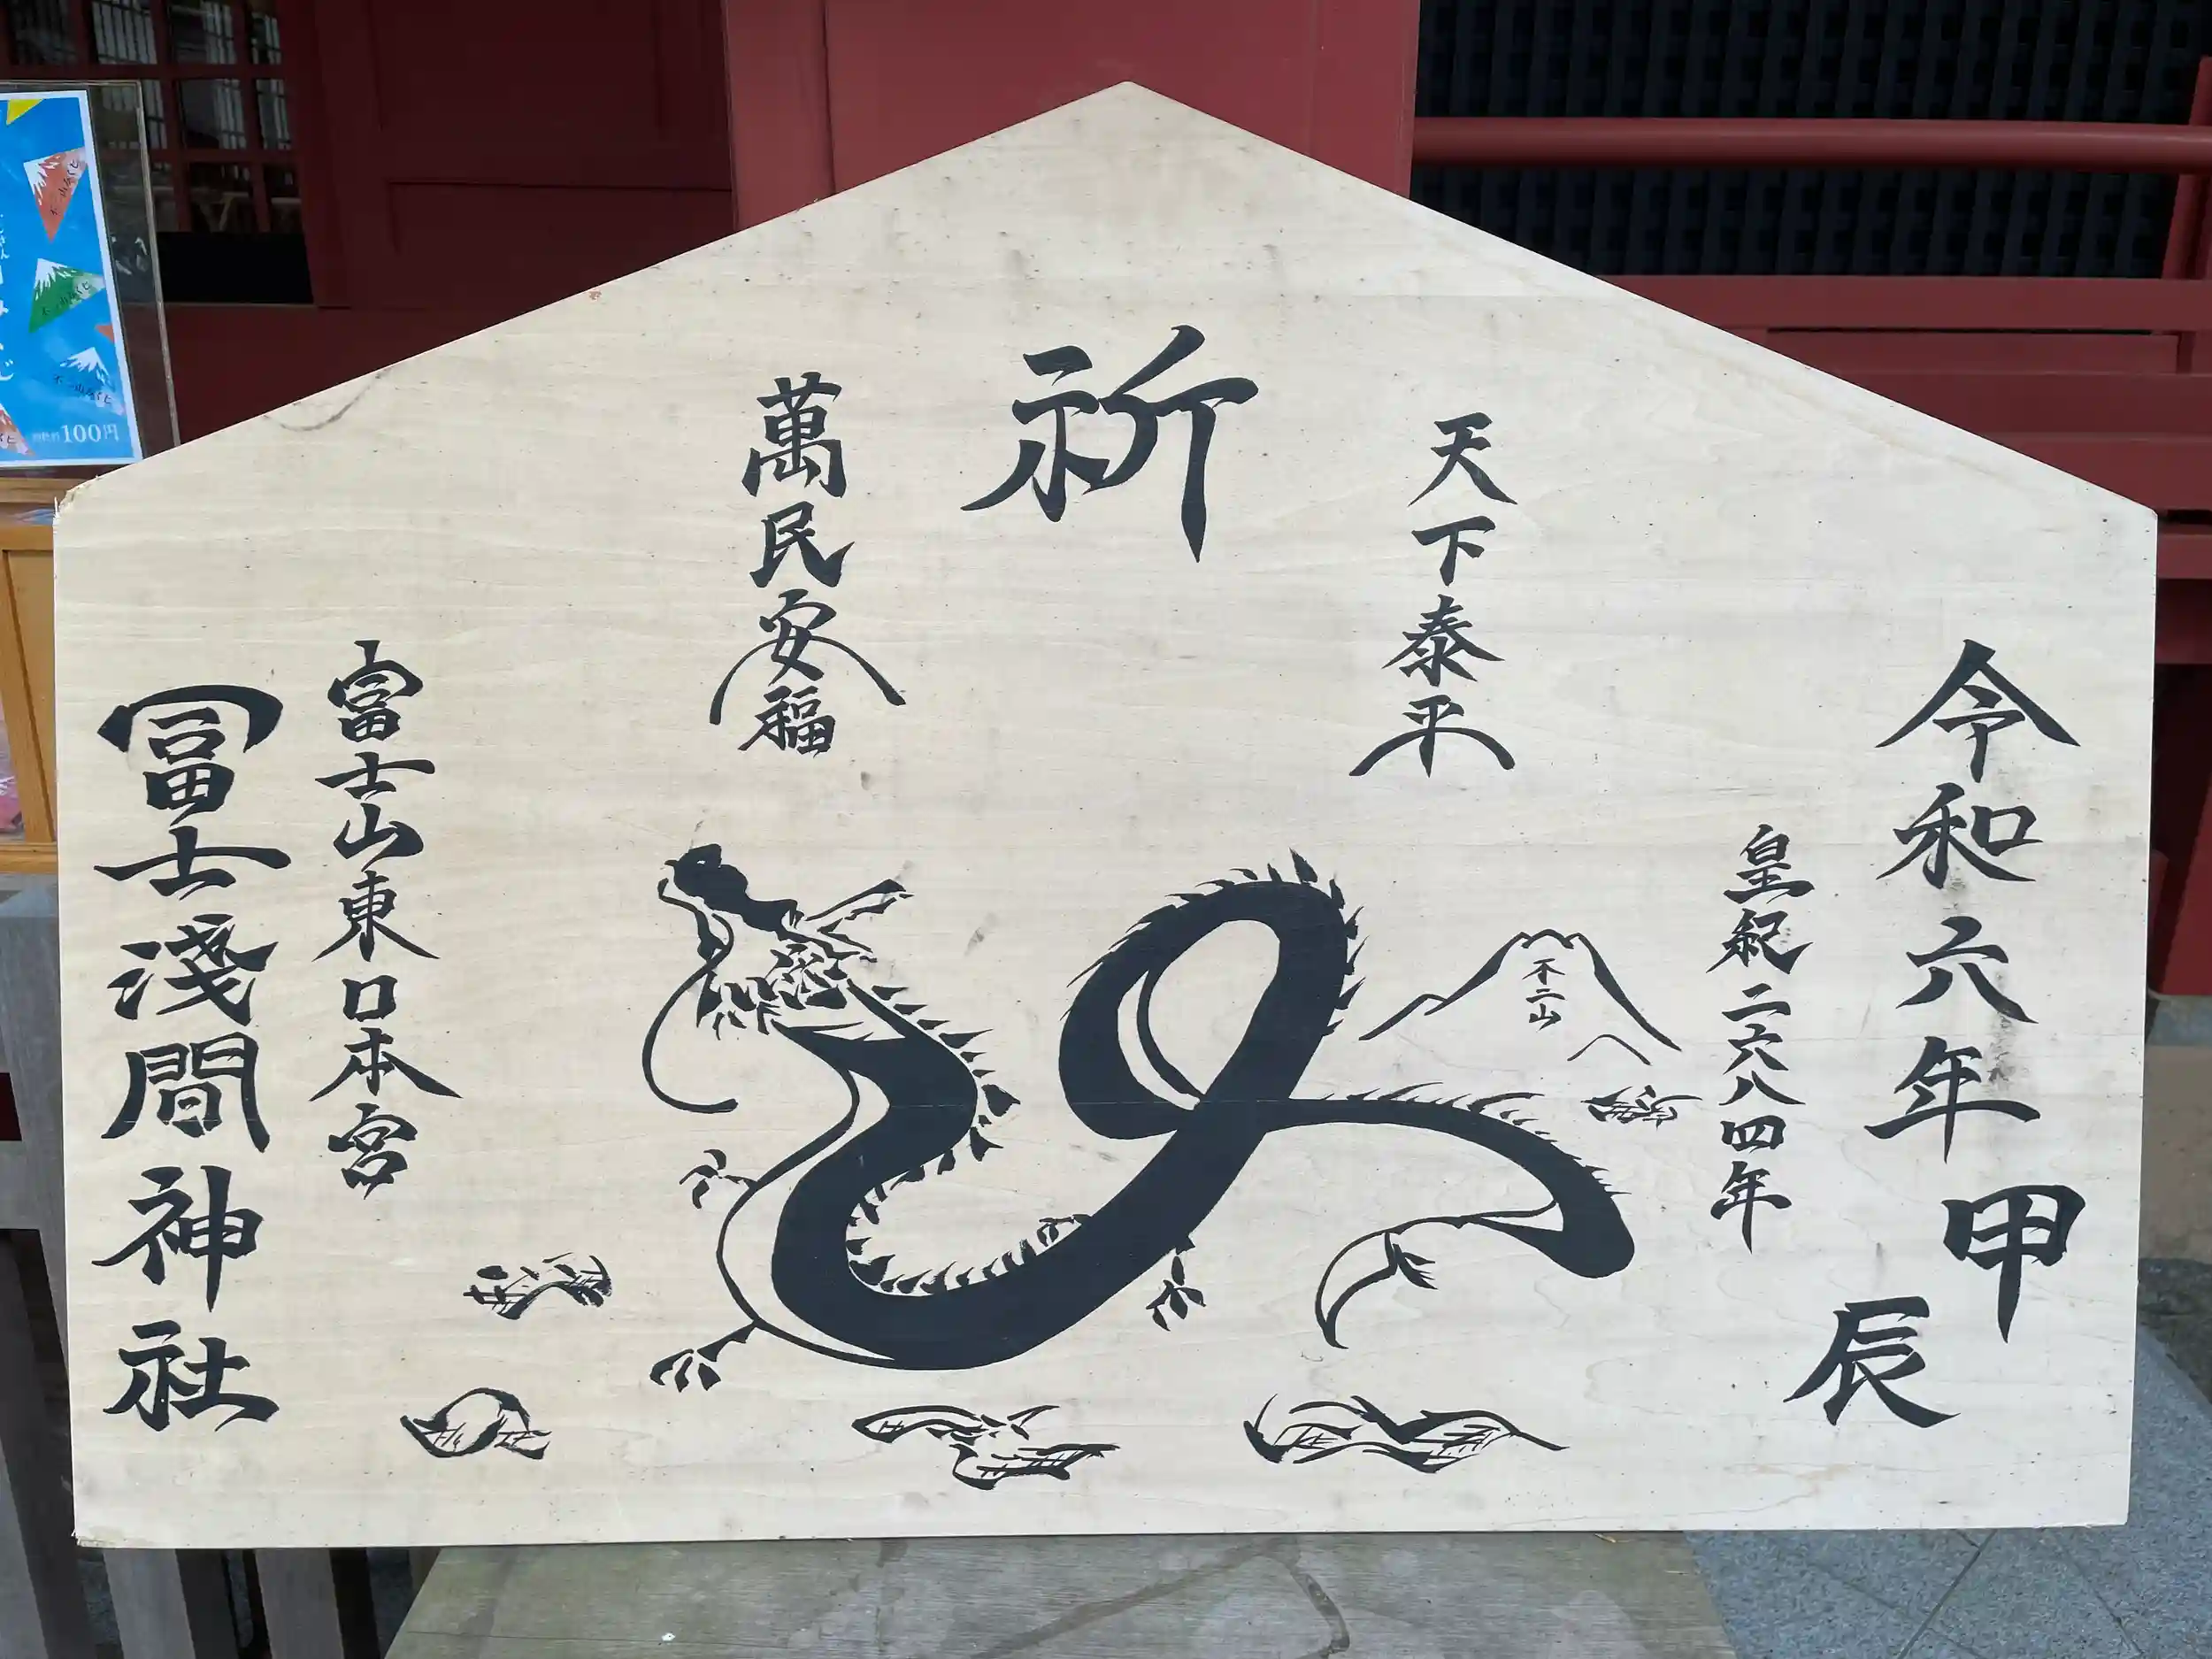 令和六年甲辰
皇紀二六八四年
天下泰平
祈
萬民安福
不二山
富士山東口本宮
冨士浅間神社
100円